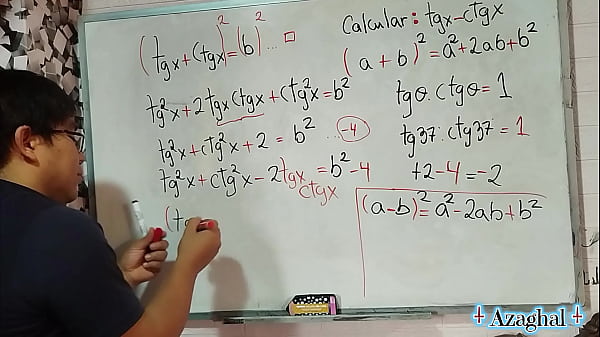 Calcular: tgx-ctgx
(tgx+ctgx)²=(b)²...□
(a+b)²=a²+2ab+b²
tg²x+2tgx ctgx+ctg²x=b²
tgθ.ctgθ=1
tg²x+ctg²x+2=b² ...-4
tg37.ctg37=1
tg²x+ctg²x-2tgx ctgx=b²-4
+2-4=-2
(a-b)²=a²-2ab+b²
(tg
Azaghal